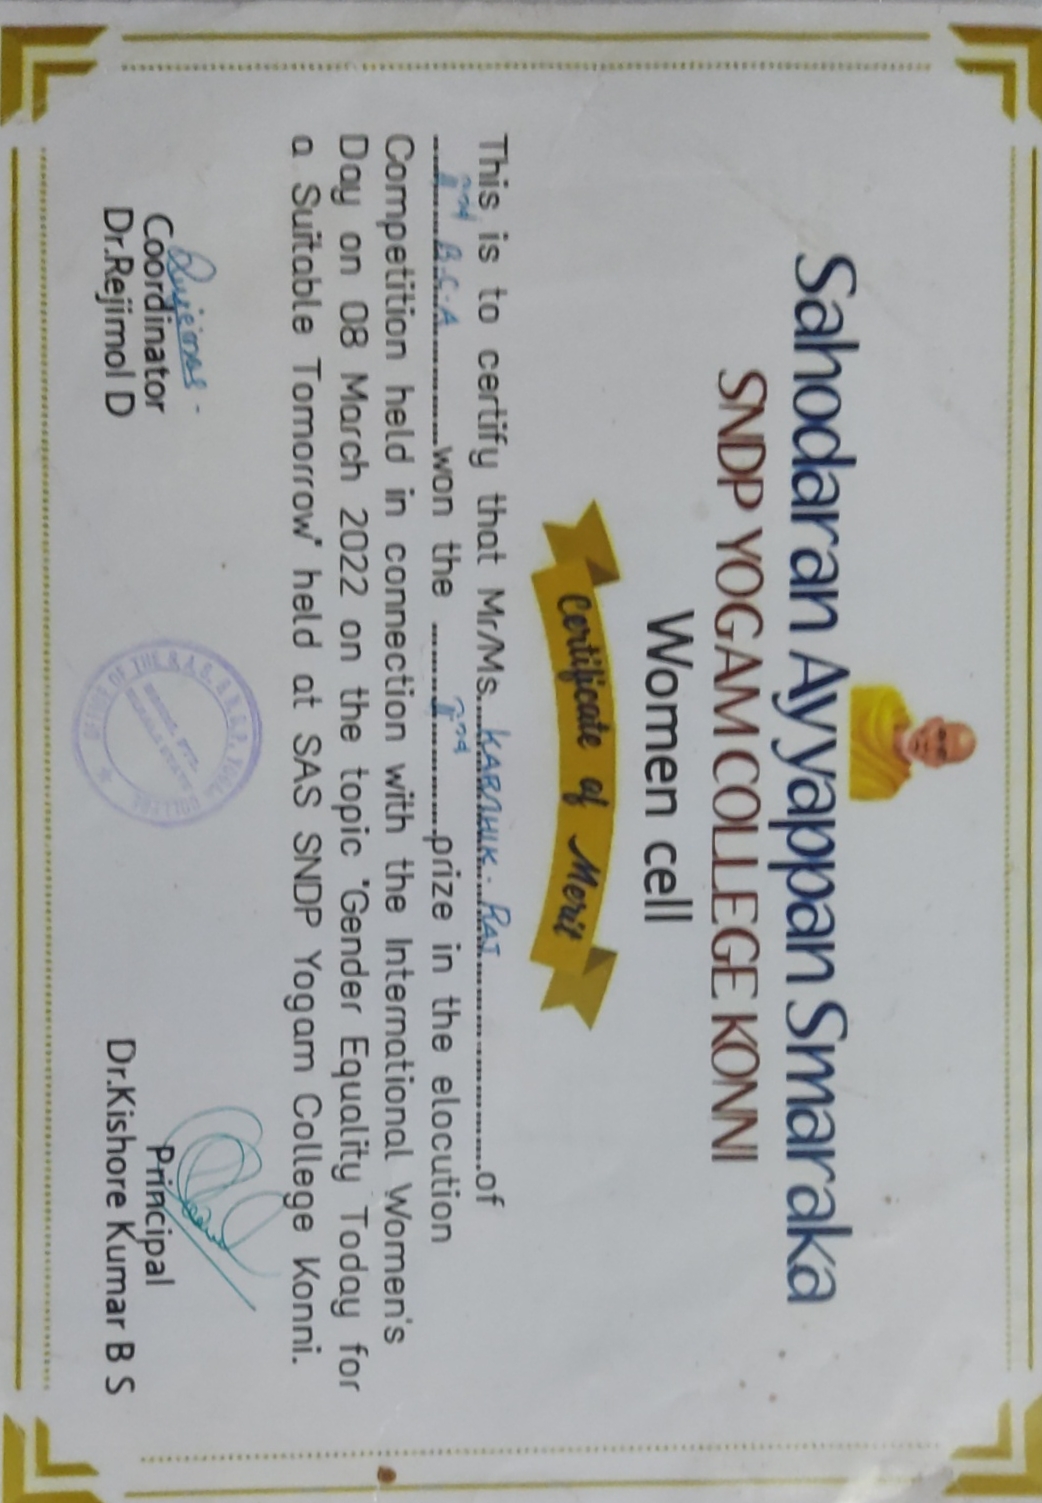 Sahodaran Ayyappan Smaraka
SNDP YOGAM COLLEGE KONNI
Women cell
Certificate of Merit
This is to certify that Mr/Ms....KARTHIK. RAJ..............................of
.......IInd B.C.A...............won the ..........IInd............prize in the elocution
Competition held in connection with the International Women's
Day on 08 March 2022 on the topic "Gender Equality Today for
a Suitable Tomorrow" held at SAS SNDP Yogam College Konni.
Coordinator
Dr.Rejimol D
OFFICE OF THE S.A.S. S.N.D.P. YOGAM COLLEGE
Principal
Dr.Kishore Kumar B S